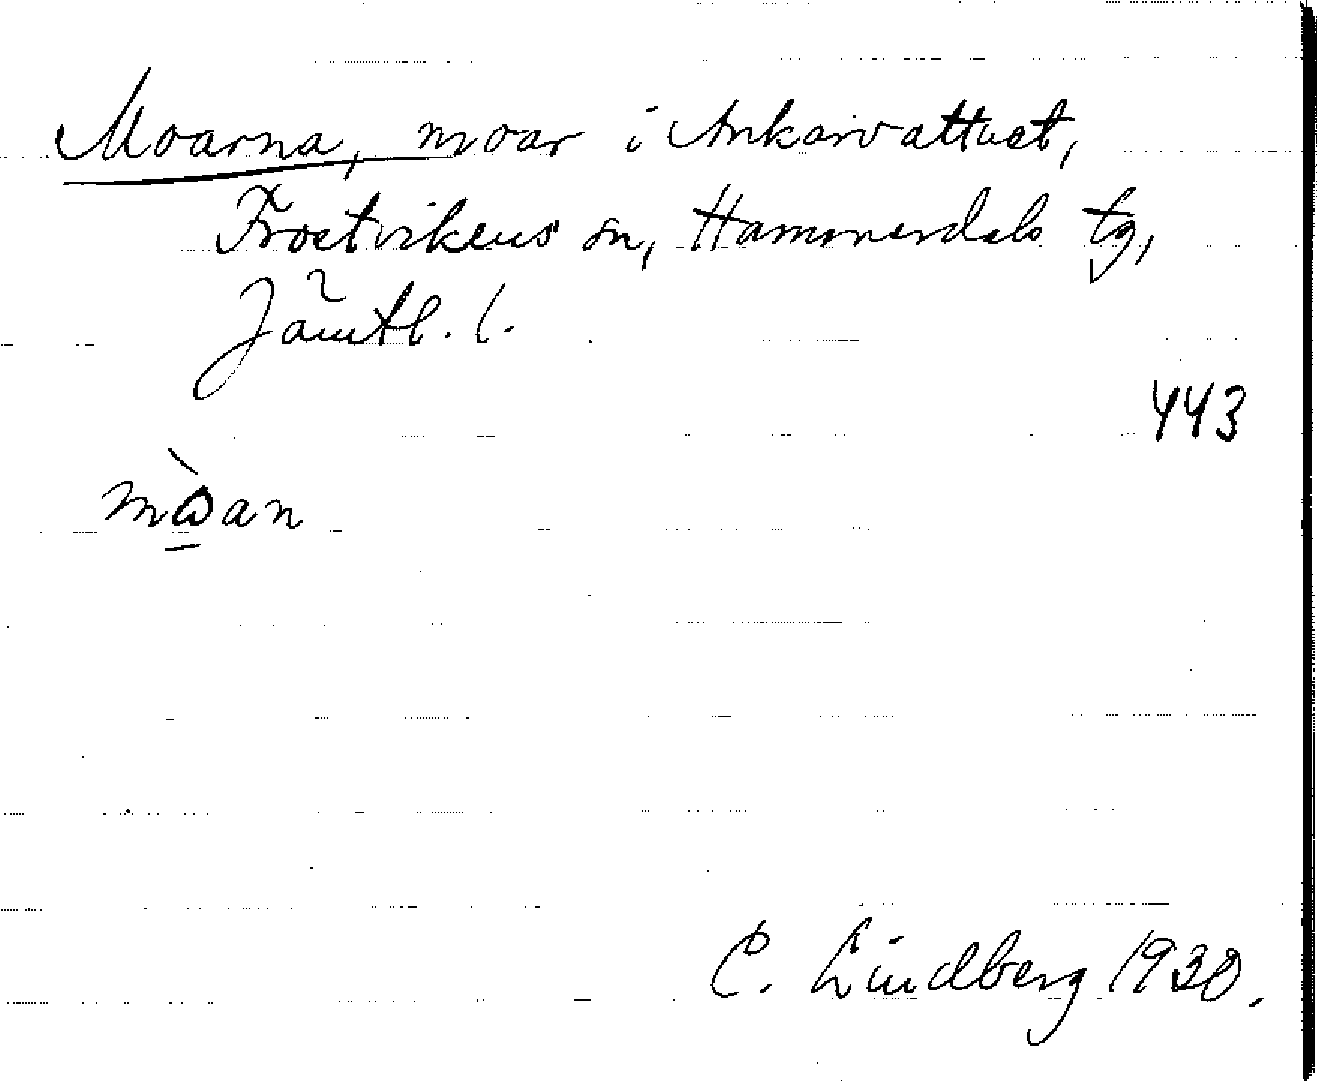 Moarna, moar i Ankarvattnet,
Frostvikens sn, Hammerdals tg,
Jämtl. l.
443
mὼan
C. Lindberg 1930.